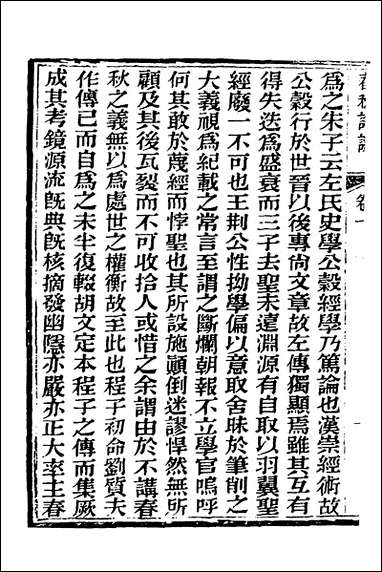 爲之朱子云左氏史學公穀經學乃篤論也漢崇經術故
公穀行於世晉以後專尚文章故左傳獨顯焉雖其互有
得失迭爲盛衰而三子去聖未遠淵源有自取以羽翼聖
經廢一不可也王荆公性拗學偏以意取舍昧於筆削之
大義視爲紀載之常言至謂之斷爛朝報不立學官嗚呼
何其敢於蔑經而悖聖也其所設施顚倒迷謬悍然無所
顧及其後瓦裂而不可收拾人或惜之余謂由於不講春
秋之義無以爲處世之權衡故至此也程子初命劉質夫
作傳已而自爲之未半復輟胡文定本程子之傳而集厥
成其考鏡源流旣典旣核摘發幽隱亦嚴亦正大率主春
卷一